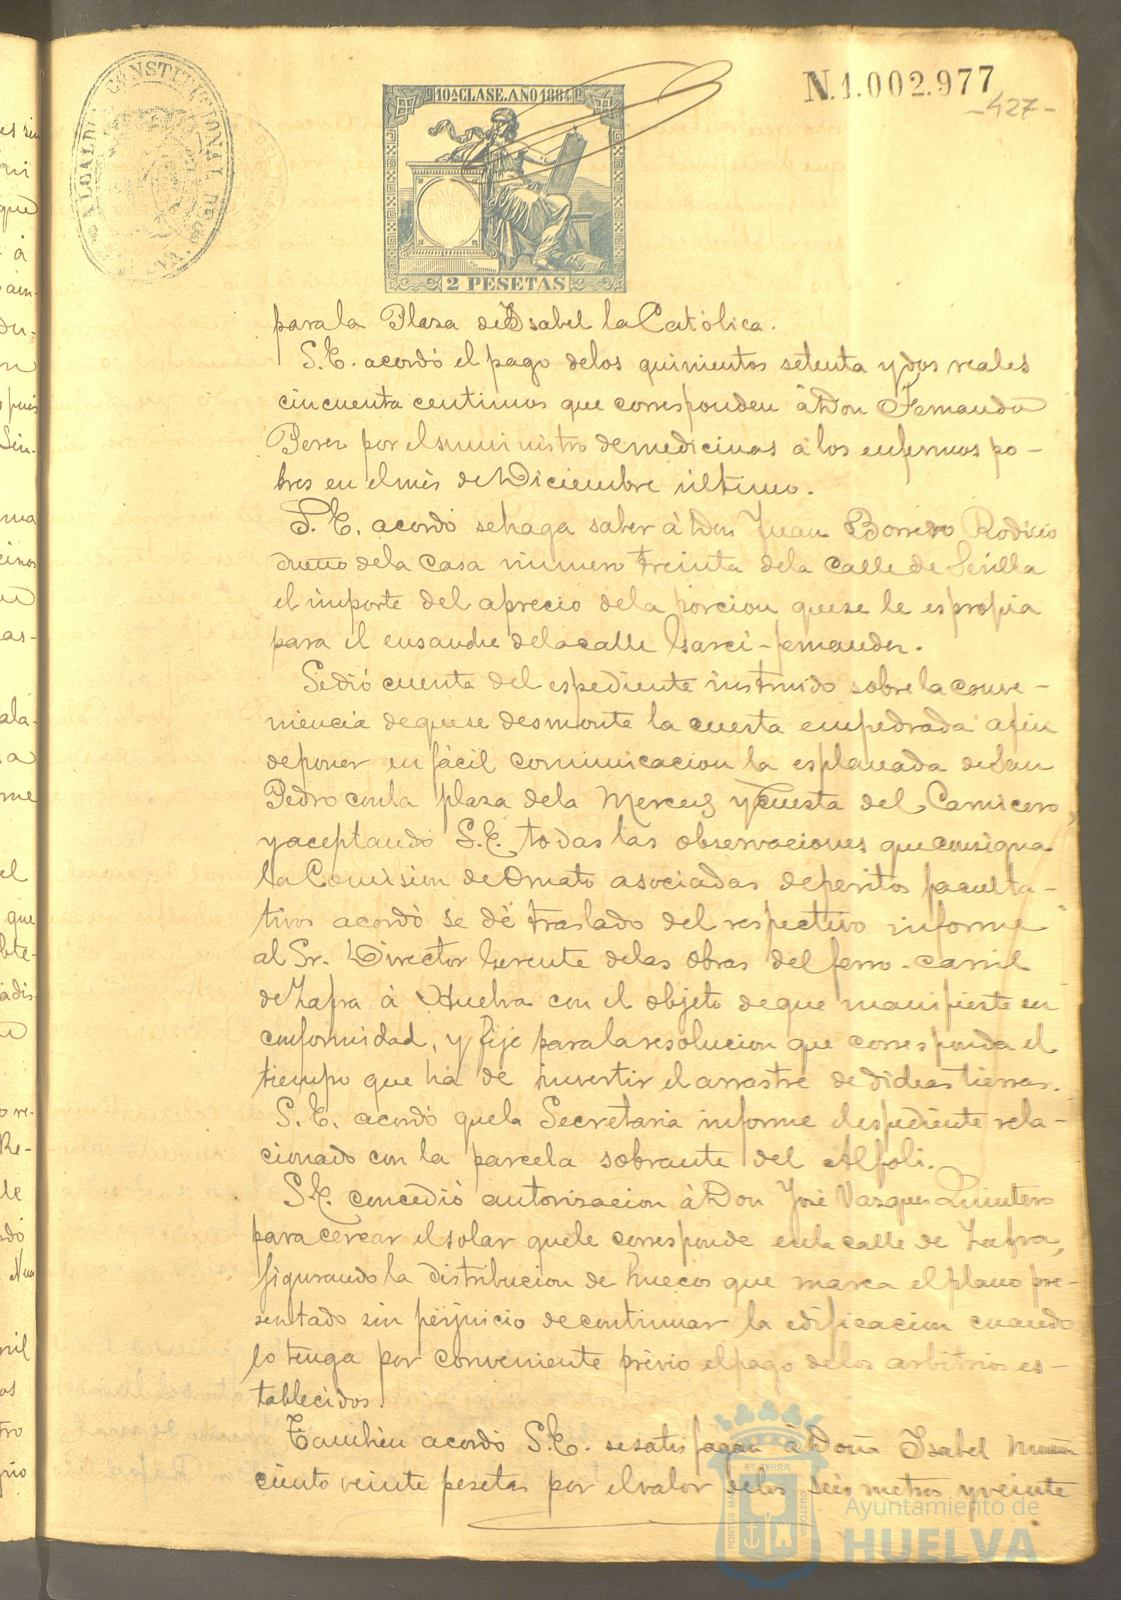 ALCALDIA CONSTITUCIONAL DE
10ª CLASE. AÑO 1884
N.1.002.977
-427-
2 PESETAS
para la Plaza de Isabel la Católica.
S.E. acordó el pago de los quinientos setenta y dos reales
cincuenta centimos que corresponden á Don Fernando
Perez por el suministro de medicinas á los enfermos po-
bres en el mes de Diciembre último.
S.E. acordó se haga saber á Don Juan Borrero Rodicio
dueño de la casa número treinta de la calle de Sevilla
el importe del aprecio de la porcion que se le espropia
para el ensanche de la calle Garci-fernandez.
Se dió cuenta del espediente instruido sobre la conve-
niencia de que se desmonte la cuesta empedrada a fin
de poner en fácil comunicacion la esplanada de San
Pedro con la plaza de la Merced y Cuesta del Carnicero,
y aceptando S.E. todas las observaciones que consigna
la Comision de Ornato asociadas de peritos faculta-
tivos acordó se dé traslado del respectivo informe
al Sr. Director Gerente de las obras del ferro-carril
de Zafra á Huelva con el objeto de que manifieste su
conformidad, y fije para la resolucion que corresponda el
tiempo que há de invertir el arrastre de dichas tierras.
S.E. acordó que la Secretaria informe el espediente rela-
cionado con la parcela sobrante del Alfoli.
S.E. concedió autorizacion á Don José Vazquez Quintero
para cercar el solar que le corresponde en la calle de Zafra,
figurando la distribucion de huecos que marca el plano pre-
sentado sin perjuicio de continuar la edificacion cuando
lo tenga por conveniente prévio el pago de los arbitrios es-
tablecidos.
Tambien acordó S.E. se satisfagan á Doña Isabel
ciento veinte pesetas por el valor de los seis metros y veinte
Ayuntamiento de
HUELVA